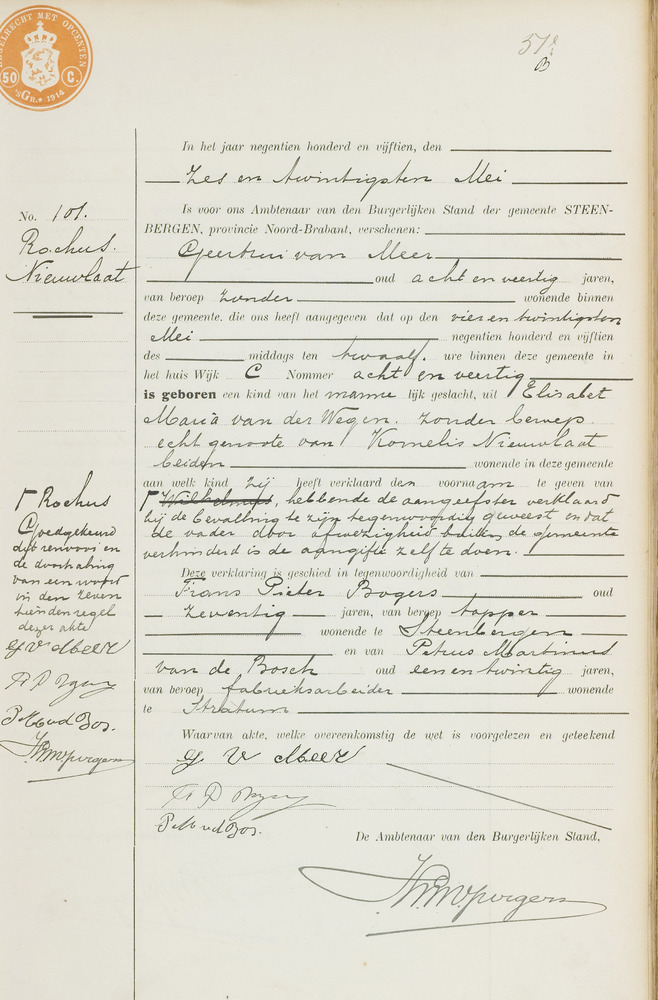 ZEGELRECHT MET OPCENTEN
50 C.
'sGR. 1914
57e
B
In het jaar negentien honderd en vijftien, den
Zes en twintigsten Mei
Is voor ons Ambtenaar van den Burgerlijken Stand der gemeente STEEN-
BERGEN, provincie Noord-Brabant, verschenen:
Geertrui van Meer
oud acht en veertig jaren,
van beroep zonder wonende binnen
deze gemeente, die ons heeft aangegeven dat op den vier en twintigsten
Mei negentien honderd en vijftien
des middags ten twaalf ure binnen deze gemeente in
het huis Wijk C Nommer acht en veertig
is geboren een kind van het manne lijk geslacht, uit Elisabet
Maria van der Wegen, zonder beroep
echtgenoote van Kornelis Nieuwlaat
beiden wonende in deze gemeente
aan welk kind zij heeft verklaard den voornaam te geven van
Γ Wilhelmus, hebbende de aangeefster verklaard
bij de bevalling te zijn tegenwoordig geweest en dat
de vader door afwezigheid buiten de gemeente
verhinderd is de aangifte zelf te doen.
Deze verklaring is geschied in tegenwoordigheid van
Frans Pieter Bogers oud
zeventig jaren, van beroep tapper
wonende te Steenbergen
en van Petrus Martinus
van de Bosch oud een en twintig jaren,
van beroep fabrieksarbeider wonende
te Stratum
Waarvan akte, welke overeenkomstig de wet is voorgelezen en geteekend
G V Meer
P M v d Bos.
De Ambtenaar van den Burgerlijken Stand,
No. 101.
Rochus.
Nieuwlaat
Γ Rochus
Goedgekeurd
dit renvooi en
de doorhaling
van een woord
in den zeven
tienden regel
dezer akte
G V Meer
P M v d Bos.